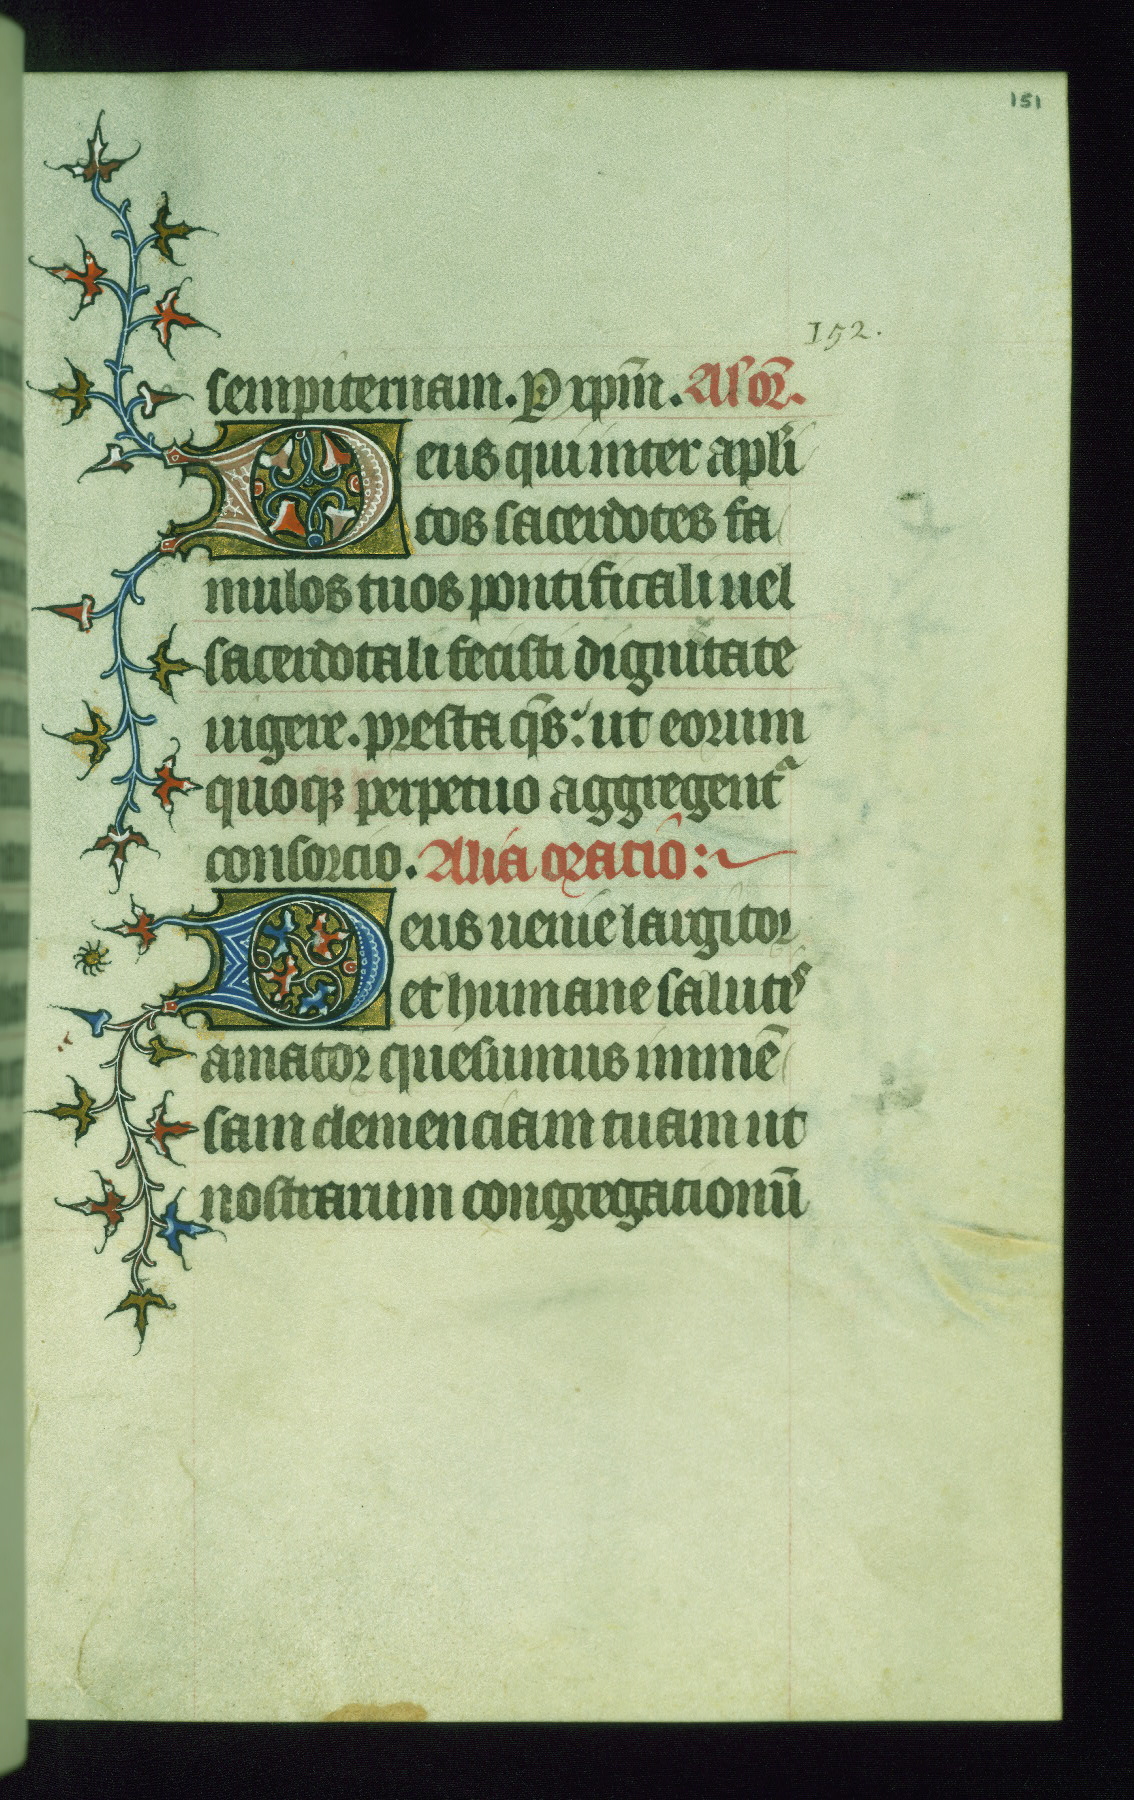 151
152.
sempiternam. P xpm̄. Al' or̄.
Deus qui inter apl'i
cos sacerdotes fa
mulos tuos pontificali uel
sacerdotali fecisti dignitate
uigere. presta q̄s: ut eorum
quoqꝫ perpetuo aggregent᷑
consorcio. Alia oratio:
Deus uenie largitor
et humane salutis
amator quesumus immē
sam clemenciam tuam ut
nostrarum congregationū